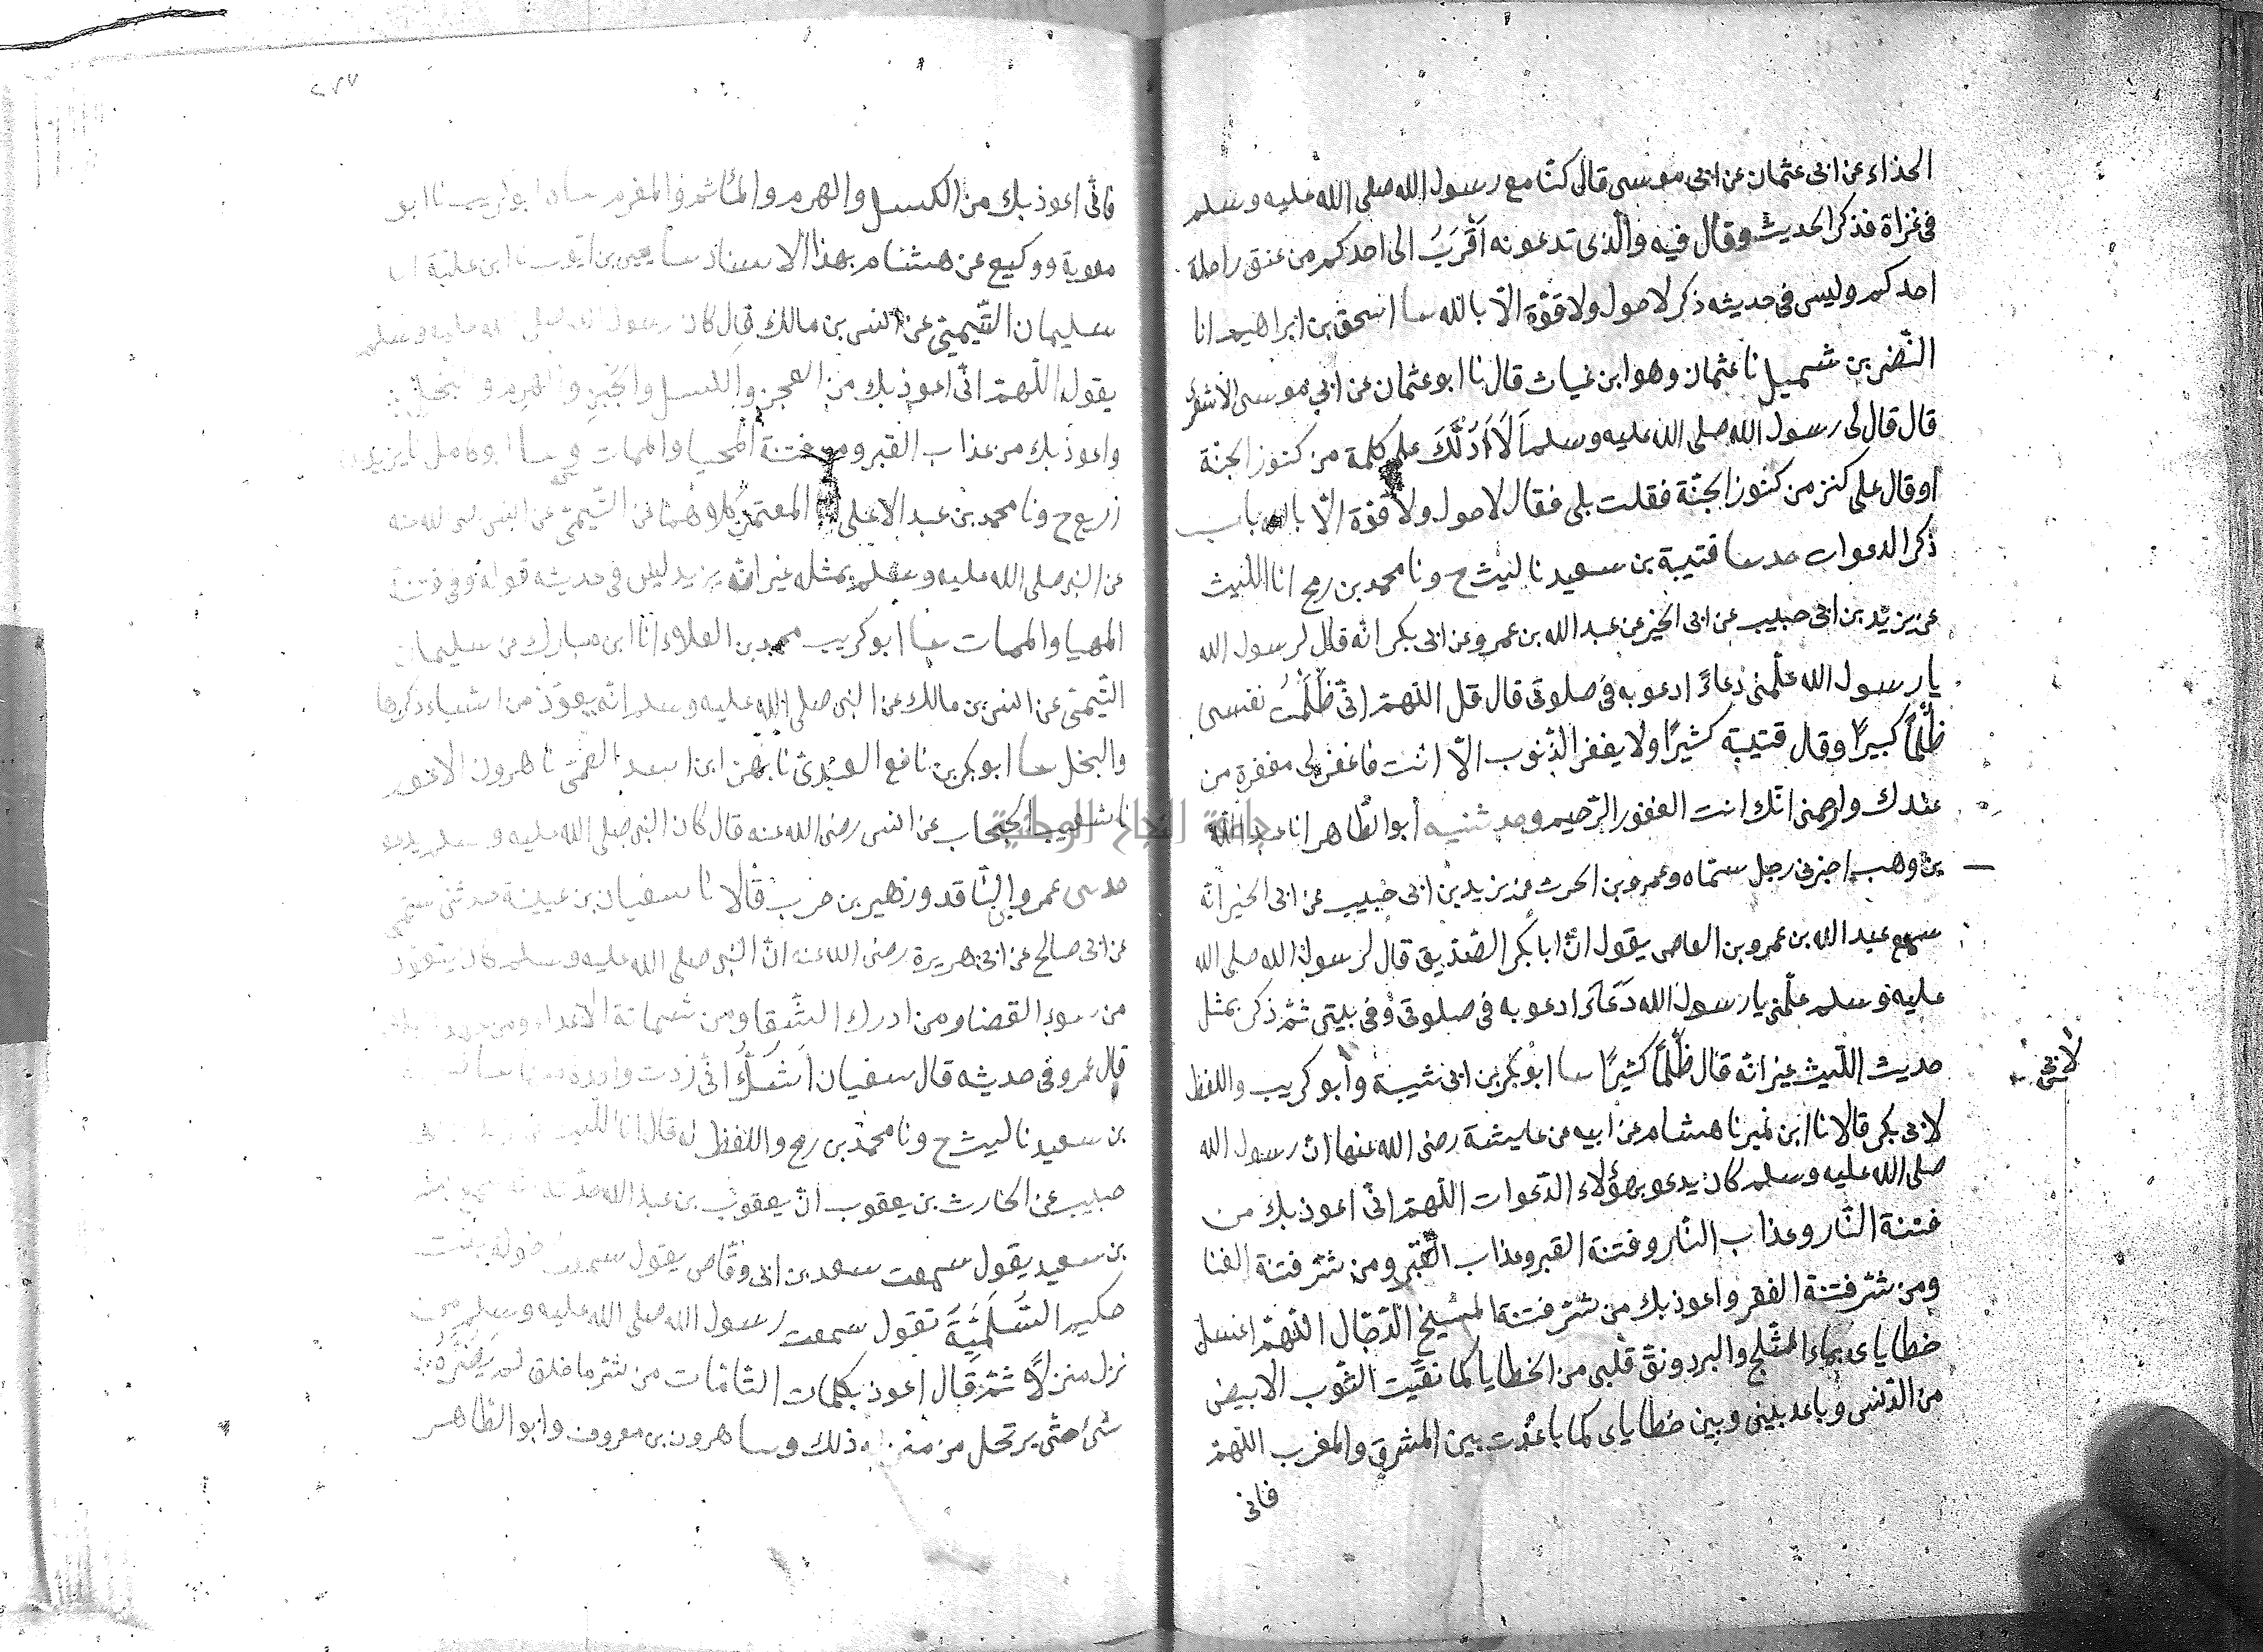 الحذاء عن ابى عثمان عن ابى موسى قال كنّا مع رسول الله صلى الله عليه وسلم
فى غزاة فذكر الحديث وقال فيه والّذى تدعونه اَقْرَبُ الى احدكم من عنق راحلة
احدكم وليس فى حديثه ذكر لا حول ولا قوّة الّا بالله سا اسحق بن ابراهيم انا
النّضر بن شميل نا عثمان وهو ابن غياث قال نا ابو عثمان عن ابى موسى الاشعرى
قال قال لى رسول الله صلى الله عليه وسلم اَلَا اَدُلّكَ على كلمة من كنوز الجنّة
او قال على كنز من كنوز الجنّة فقلت بلى فقال لا حول ولا قوّة الّا بالله باب
ذكر الدعوات حدسا قتيبة بن سعيد نا ليث ح ونا محمد بن رمح انا الليث
عن يزيد بن ابى حبيب عن ابى الخير عن عبد الله بن عمرو عن ابى بكر انّه قال لرسول الله
يا رسول الله علّمنى دعاءً ادعو به فى صلوتى قال قل اللّهمّ انّى ظَلَمْتُ نفسى
ظُلْمًا كبيرًا وقال قتيبة كثيرًا ولا يغفر الذّنوب الّا انت فاغفر لى مغفرة من
عندك وارحمنى انّك انت الغفور الرّحيم وحدثنيه أبو الطّاهر انا عبد الله
بن وهب اخبرنى رجل سمّاه وعمرو بن الحرث عن يزيد بن ابى حبيب عن ابى الخير انّه
سمع عبد الله بن عمرو بن العاص يقول انّ ابا بكر الصّدّيق قال لرسول الله صلى الله
عليه وسلم علّمنى يا رسول الله دعاءً ادعو به فى صلوتى وفى بيتى ثمّ ذكر بمثل
حديث اللّيث غير انّه قال ظُلْمًا كثيرًا سا ابو بكر بن ابى شيبة وأبو كريب واللفظ
لابى بكر قالا نا ابن نمير نا هشام عن ابيه عن عايشة رضى الله عنها انّ رسول الله
صلى الله عليه وسلم كان يدعو بهؤلاء الدّعوات اللّهمّ انّى اعوذ بك من
فتنة النّار وعذاب النّار وفتنة القبر وعذاب القبر ومن شرّ فتنة الغنا
ومن شرّ فتنة الفقر واعوذ بك من شرّ فتنة المسيح الدّجّال اللّهمّ اغسل
خطاياى بماء الثّلج والبرد ونقّ قلبى من الخطايا كما نقّيت الثّوب الابيض
من الدّنس وباعد بينى وبين خطاياى كما باعدت بين المشرق والمغرب اللّهمّ
فانى
فانّى اعوذ بك من الكسل والهرم والمأثم والمغرم سا ابو كريب نا ابو
معوية ووكيع عن هشام بهذا الاسناد سا يحيى بن ايّوب نا ابن عليّة
سليمان التّيمىّ عن انس بن مالك قال كان رسول الله صلى الله عليه وسلم
يقول اللّهمّ انّى اعوذ بك من العجز والكسل والجبن والهرم والبخل
واعوذ بك من عذاب القبر ومن فتنة المحيا والممات سا ابو كامل نا يزيد بن
زريع ح ونا محمد بن عبد الاعلى المعتمر كلاهما عن التّيمىّ عن انس
عن النبى صلى الله عليه وسلم بمثله غير انّ يزيد ليس فى حديثه قوله وفى فتنة
المحيا والممات سا ابو كريب محمد بن العلاء انا ابن مبارك عن سليمان
التّيمىّ عن انس بن مالك عن النبى صلى الله عليه وسلم انّه يعوّذ من اشياء ذكرها
والبخل سا ابو بكر بن نافع العبدىّ نا بهز ابن اسد العمّىّ نا هرون الاعور
نا شعيب الحبحاب عن انس رضى الله عنه قال كان النبى صلى الله عليه وسلم يدعو
حدسى عمرو النّاقد وزهير بن حرب قالا نا سفيان بن عيينة حدثنى سمّى
عن ابى صالح عن ابى هريرة رضى الله عنه انّ النبى صلى الله عليه وسلم كان يتعوّذ
من سوء القضا ومن ادرك الشّقا ومن شماتة الاعداء ومن جهد
قال عمرو فى حديثه قال سفيان اَشكّ انّى زدت واحدة
بن سعيد نا ليث ح ونا محمّد بن رمح واللفظ له قال انا الليث عن
حبيب عن الحارث بن يعقوب انّ يعقوب بن عبد الله حدّثه
بن سعيد يقول سمعت سعد بن ابى وقّاص يقول سمعت خولة بنت
حكيم السّلميّة تقول سمعت رسول الله صلى الله عليه وسلم من
نزل منزلًا ثمّ قال اعوذ بكلمات التّامّات من شرّ ما خلق لم يَضُرّهُ
شئ حتّى يرتحل من منزله ذلك وسا هرون بن معروف وابو الطّاهر
جامعة النجاح الوطنية